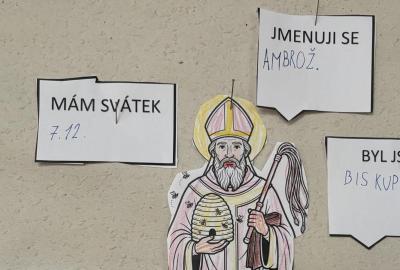 JMENUJI SE
AMBROŽ.
MÁM SVÁTEK
7.12.
BYL
BISKUP